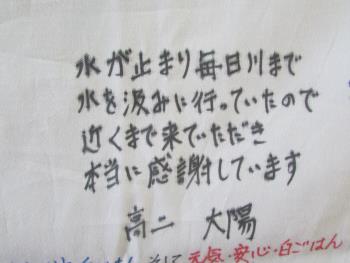 水が止まり毎日川まで
水を汲みに行っていたので
近くまで来ていただき
本当に感謝しています
高二 大陽
元気・安心・白ごはん